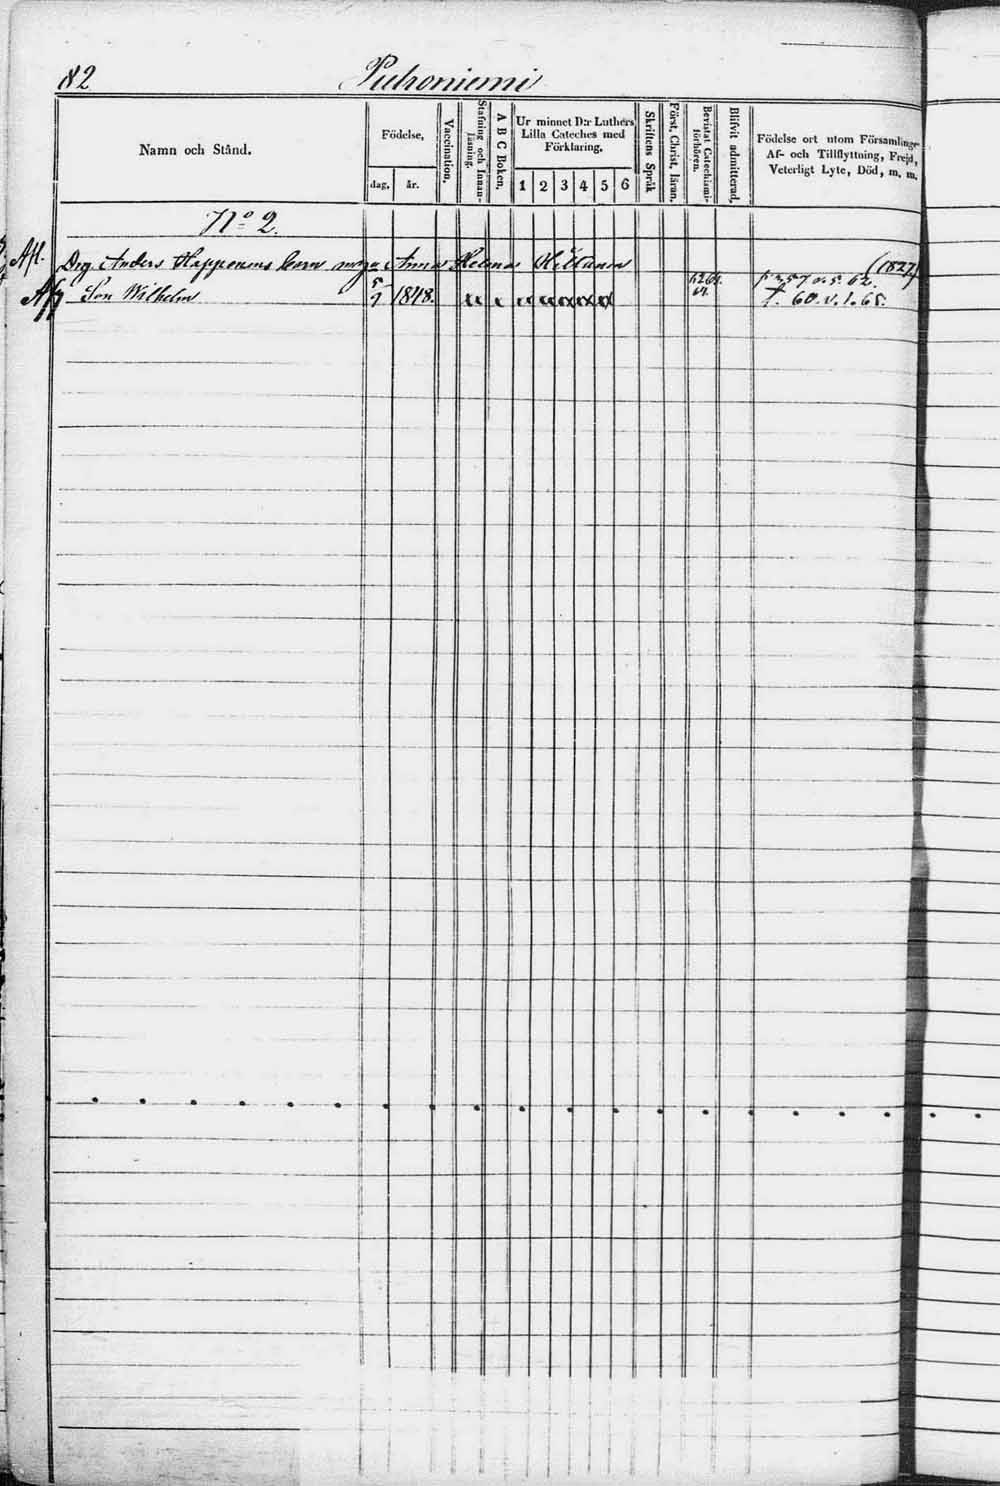 82
Puhoniemi
Namn och Stånd.
Födelse,
dag,
år.
Vaccination.
Stafning och Innanläsning.
A B C Boken.
Ur minnet D:r Luthers
Lilla Cateches med
Förklaring.
1 2 3 4 5 6
Skriftens Språk
Först. Christ. läran.
Bevistat Catechismiförhören.
Blifvit admitterad.
Födelse ort utom Församlingen
Af- och Tillflyttning, Frejd,
Veterligt Lyte, Död, m. m.
No 2.
Afl. Drg Anders Happonens barn m Anna Helena (1827)
Son Wilhelm 5/7 1848.
60. v. 1. 65.